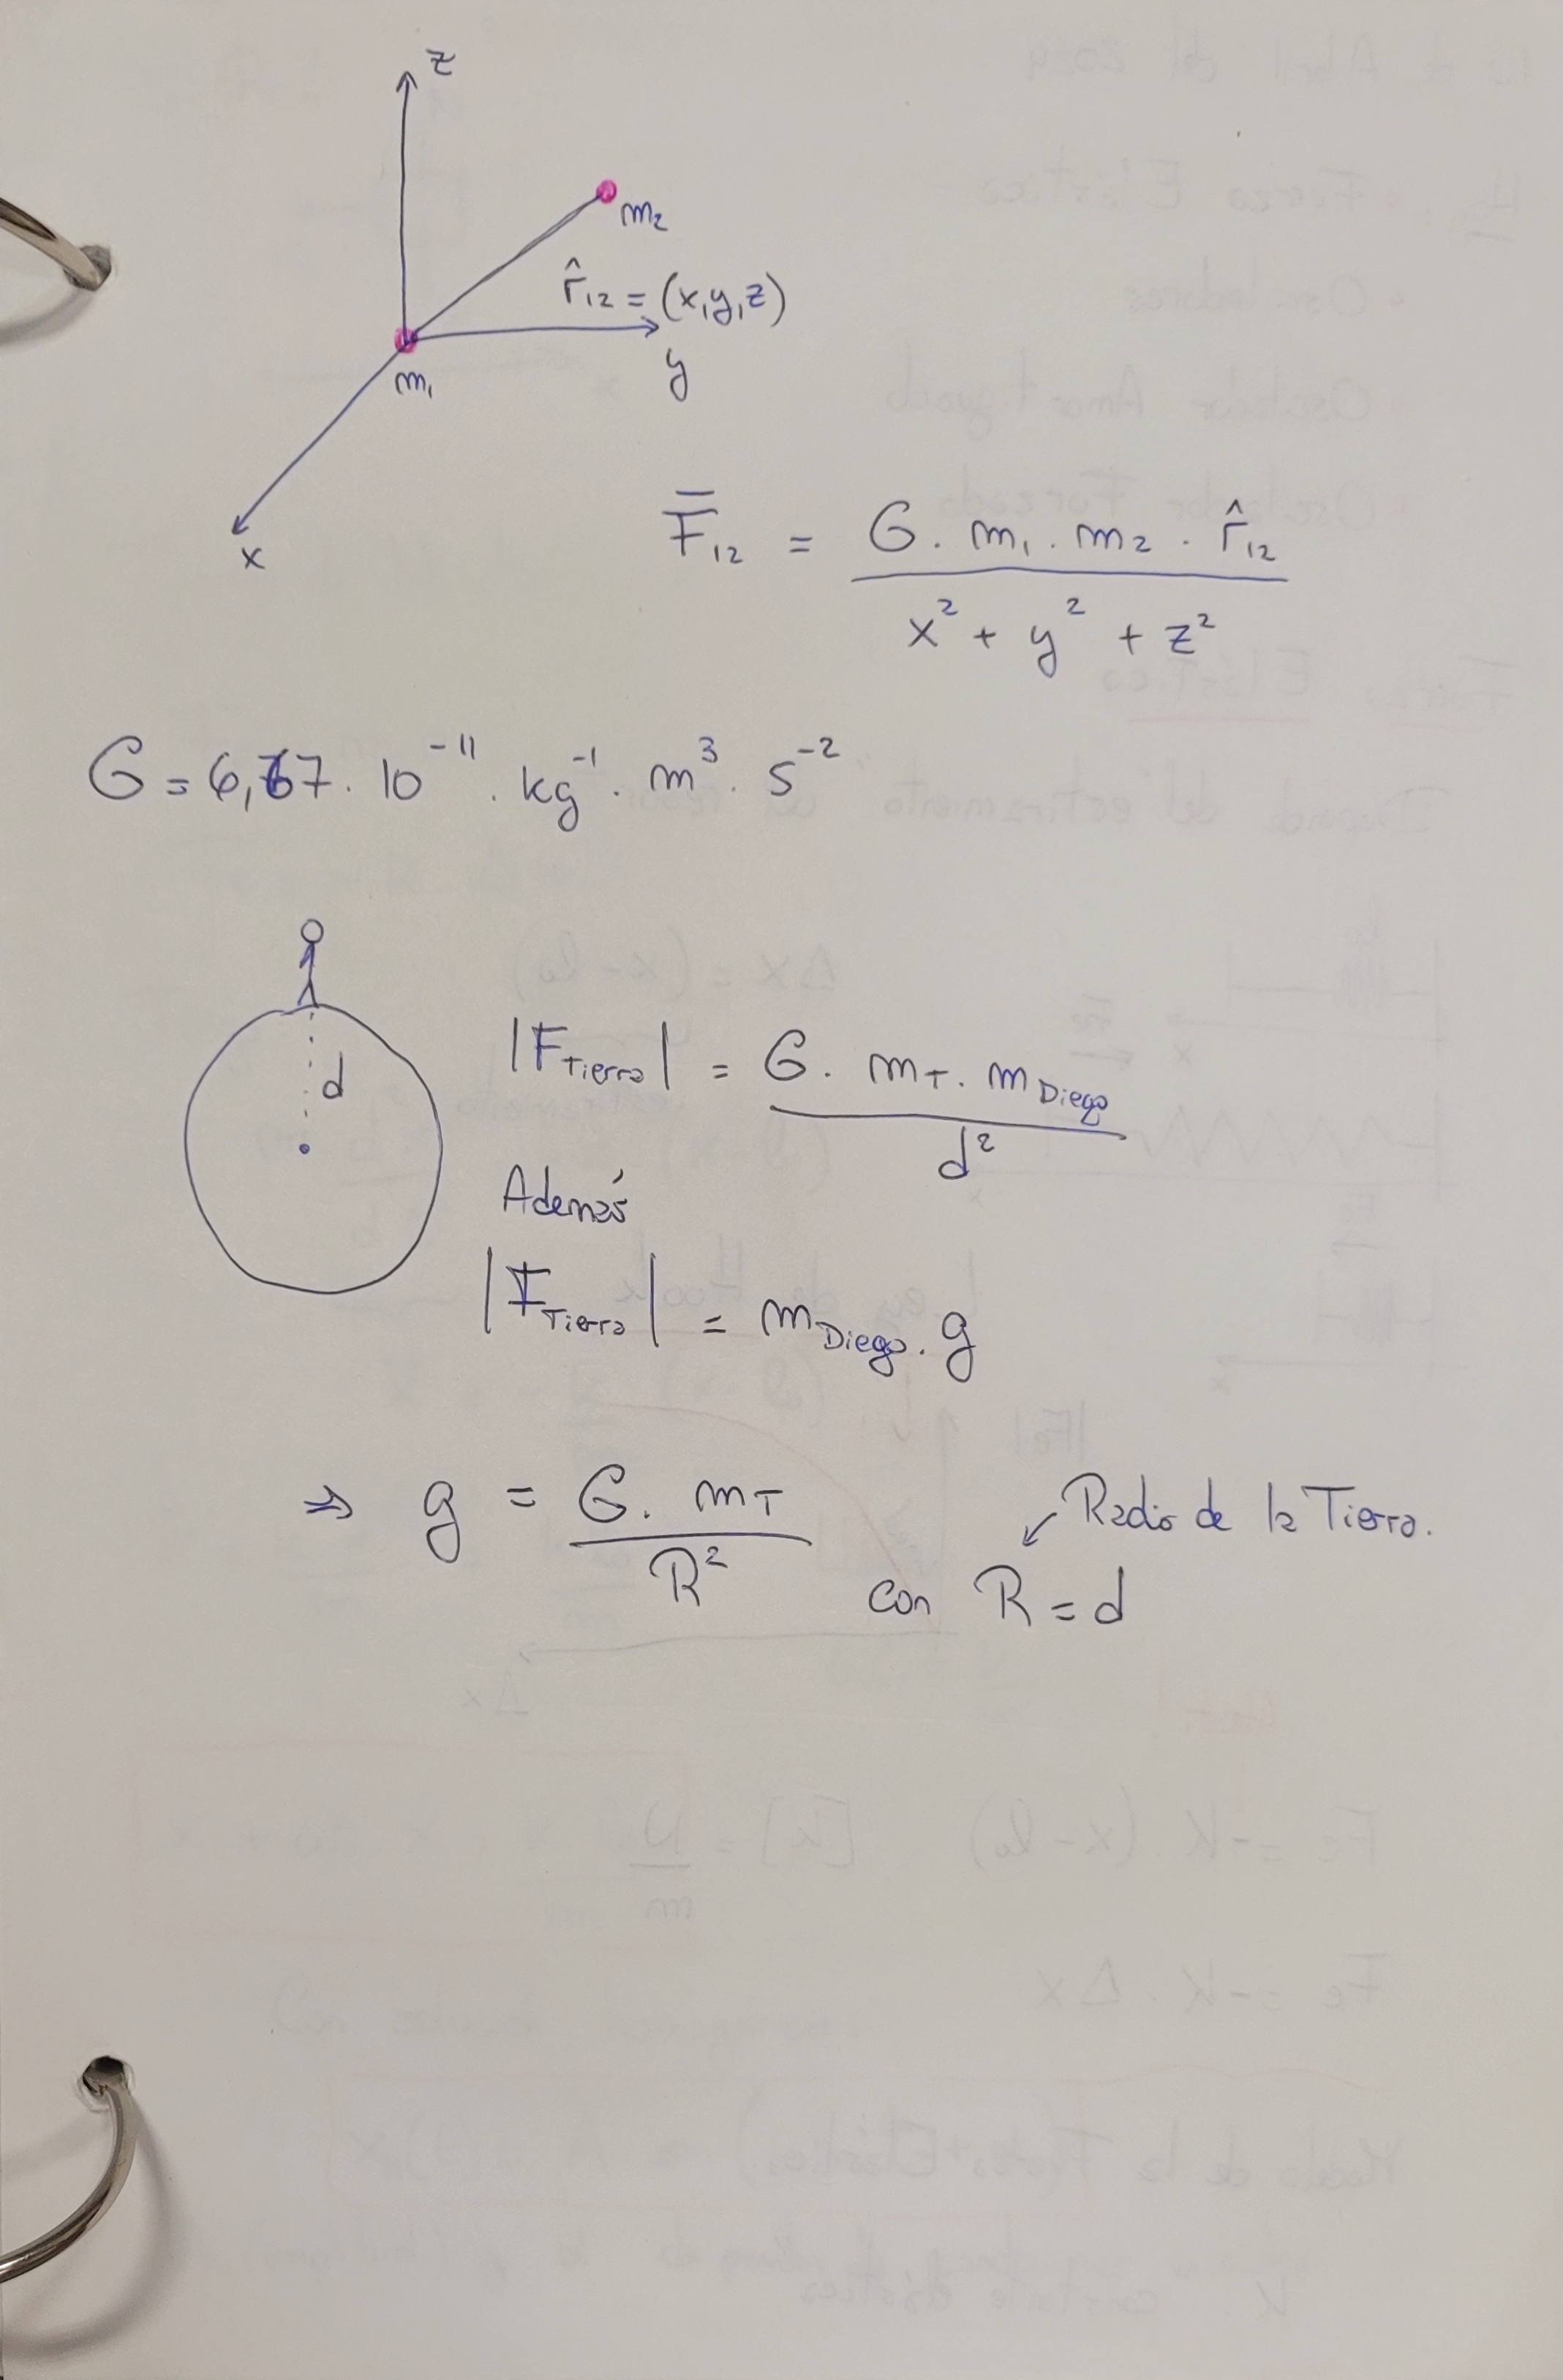 z
m₂
r̂₁₂ = (x,y,z)
y
m₁
x
F̿₁₂ = G . m₁ . m₂ . r̂₁₂
x² + y² + z²
G = 6,67 . 10⁻¹¹ . kg⁻¹ . m³ . s⁻²
d
|F Tierra| = G . m T . m Diego
d²
Además
|F Tierra| = m Diego . g
⇒ g = G . m T
R²
↙ Radio de la Tierra.
con R = d